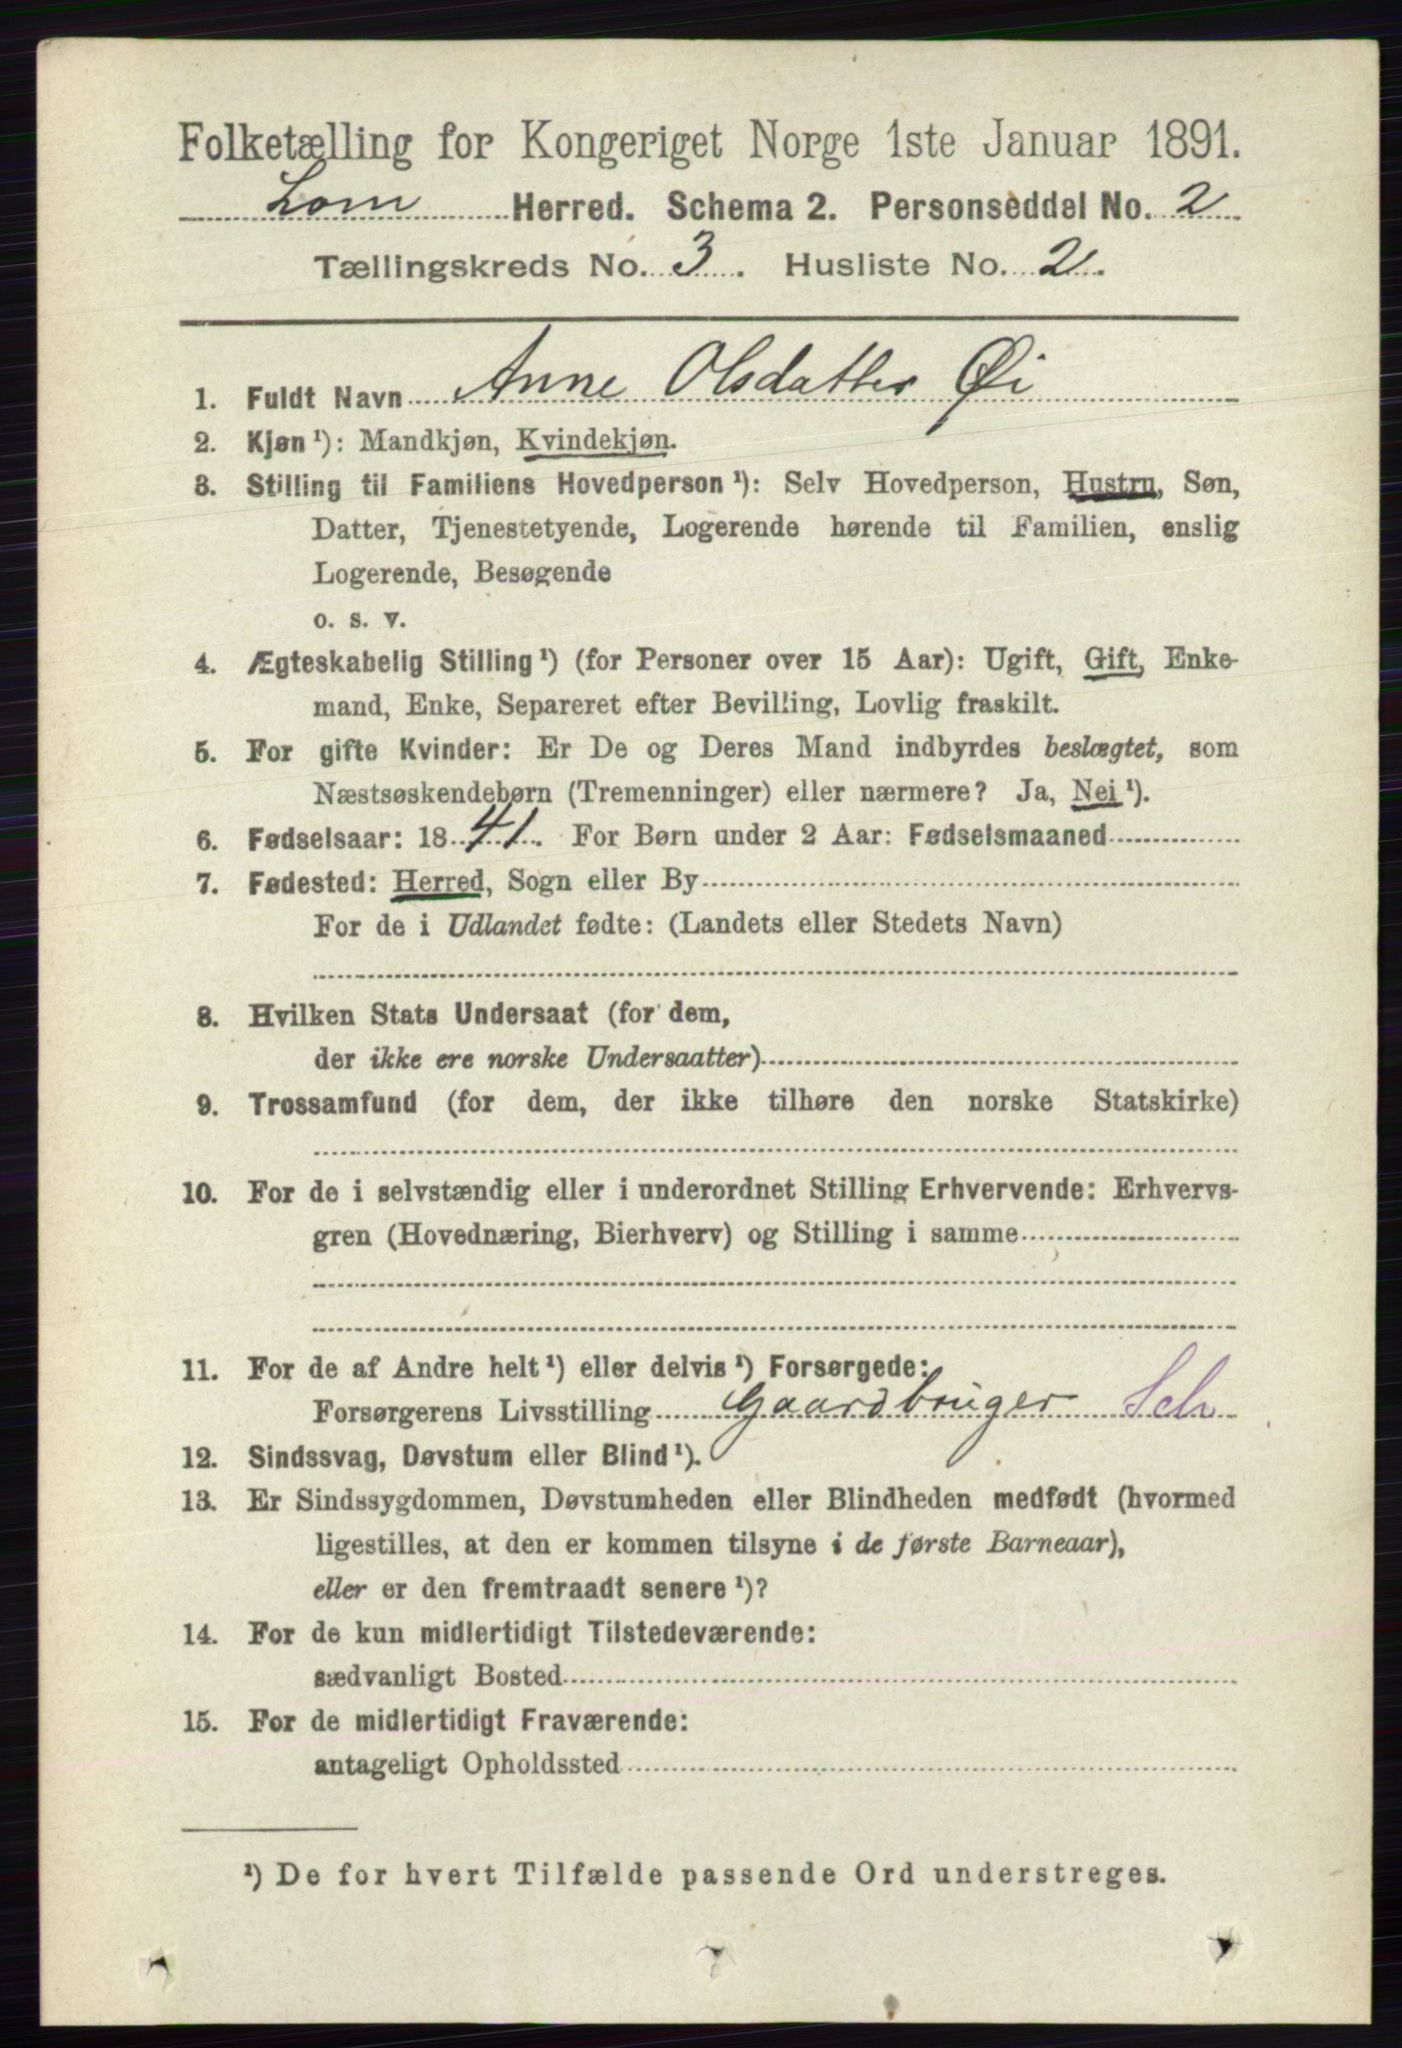 Folketælling for Kongeriget Norge 1ste Januar 1891.
Lom Herred. Schema 2. Personseddel No. 2
Tællingskreds No. 3. Husliste No. 2.
1. Fuldt Navn Anne Olsdatter Øi
2. Kjøn ¹): Mandkjøn, Kvindekjøn.
3. Stilling til Familiens Hovedperson ¹): Selv Hovedperson, Hustru, Søn,
Datter, Tjenestetyende, Logerende hørende til Familien, enslig
Logerende, Besøgende
o. s. v.
4. Ægteskabelig Stilling ¹) (for Personer over 15 Aar): Ugift, Gift, Enke-
mand, Enke, Separeret efter Bevilling, Lovlig fraskilt.
5. For gifte Kvinder: Er De og Deres Mand indbyrdes beslægtet, som
Næstsøskendebørn (Tremenninger) eller nærmere? Ja, Nei ¹).
6. Fødselsaar: 1841. For Børn under 2 Aar: Fødselsmaaned
7. Fødested: Herred, Sogn eller By
For de i Udlandet fødte: (Landets eller Stedets Navn)
8. Hvilken Stats Undersaat (for dem,
der ikke ere norske Undersaatter)
9. Trossamfund (for dem, der ikke tilhøre den norske Statskirke)
10. For de i selvstændig eller i underordnet Stilling Erhvervende: Erhvervs-
gren (Hovednæring, Bierhverv) og Stilling i samme
11. For de af Andre helt ¹) eller delvis ¹) Forsørgede:
Forsørgerens Livsstilling Gaardbruger Selv
12. Sindssvag, Døvstum eller Blind ¹).
13. Er Sindssygdommen, Døvstumheden eller Blindheden medfødt (hvormed
ligestilles, at den er kommen tilsyne i de første Barneaar),
eller er den fremtraadt senere ¹)?
14. For de kun midlertidigt Tilstedeværende:
sædvanligt Bosted
15. For de midlertidigt Fraværende:
antageligt Opholdssted
¹) De for hvert Tilfælde passende Ord understreges.